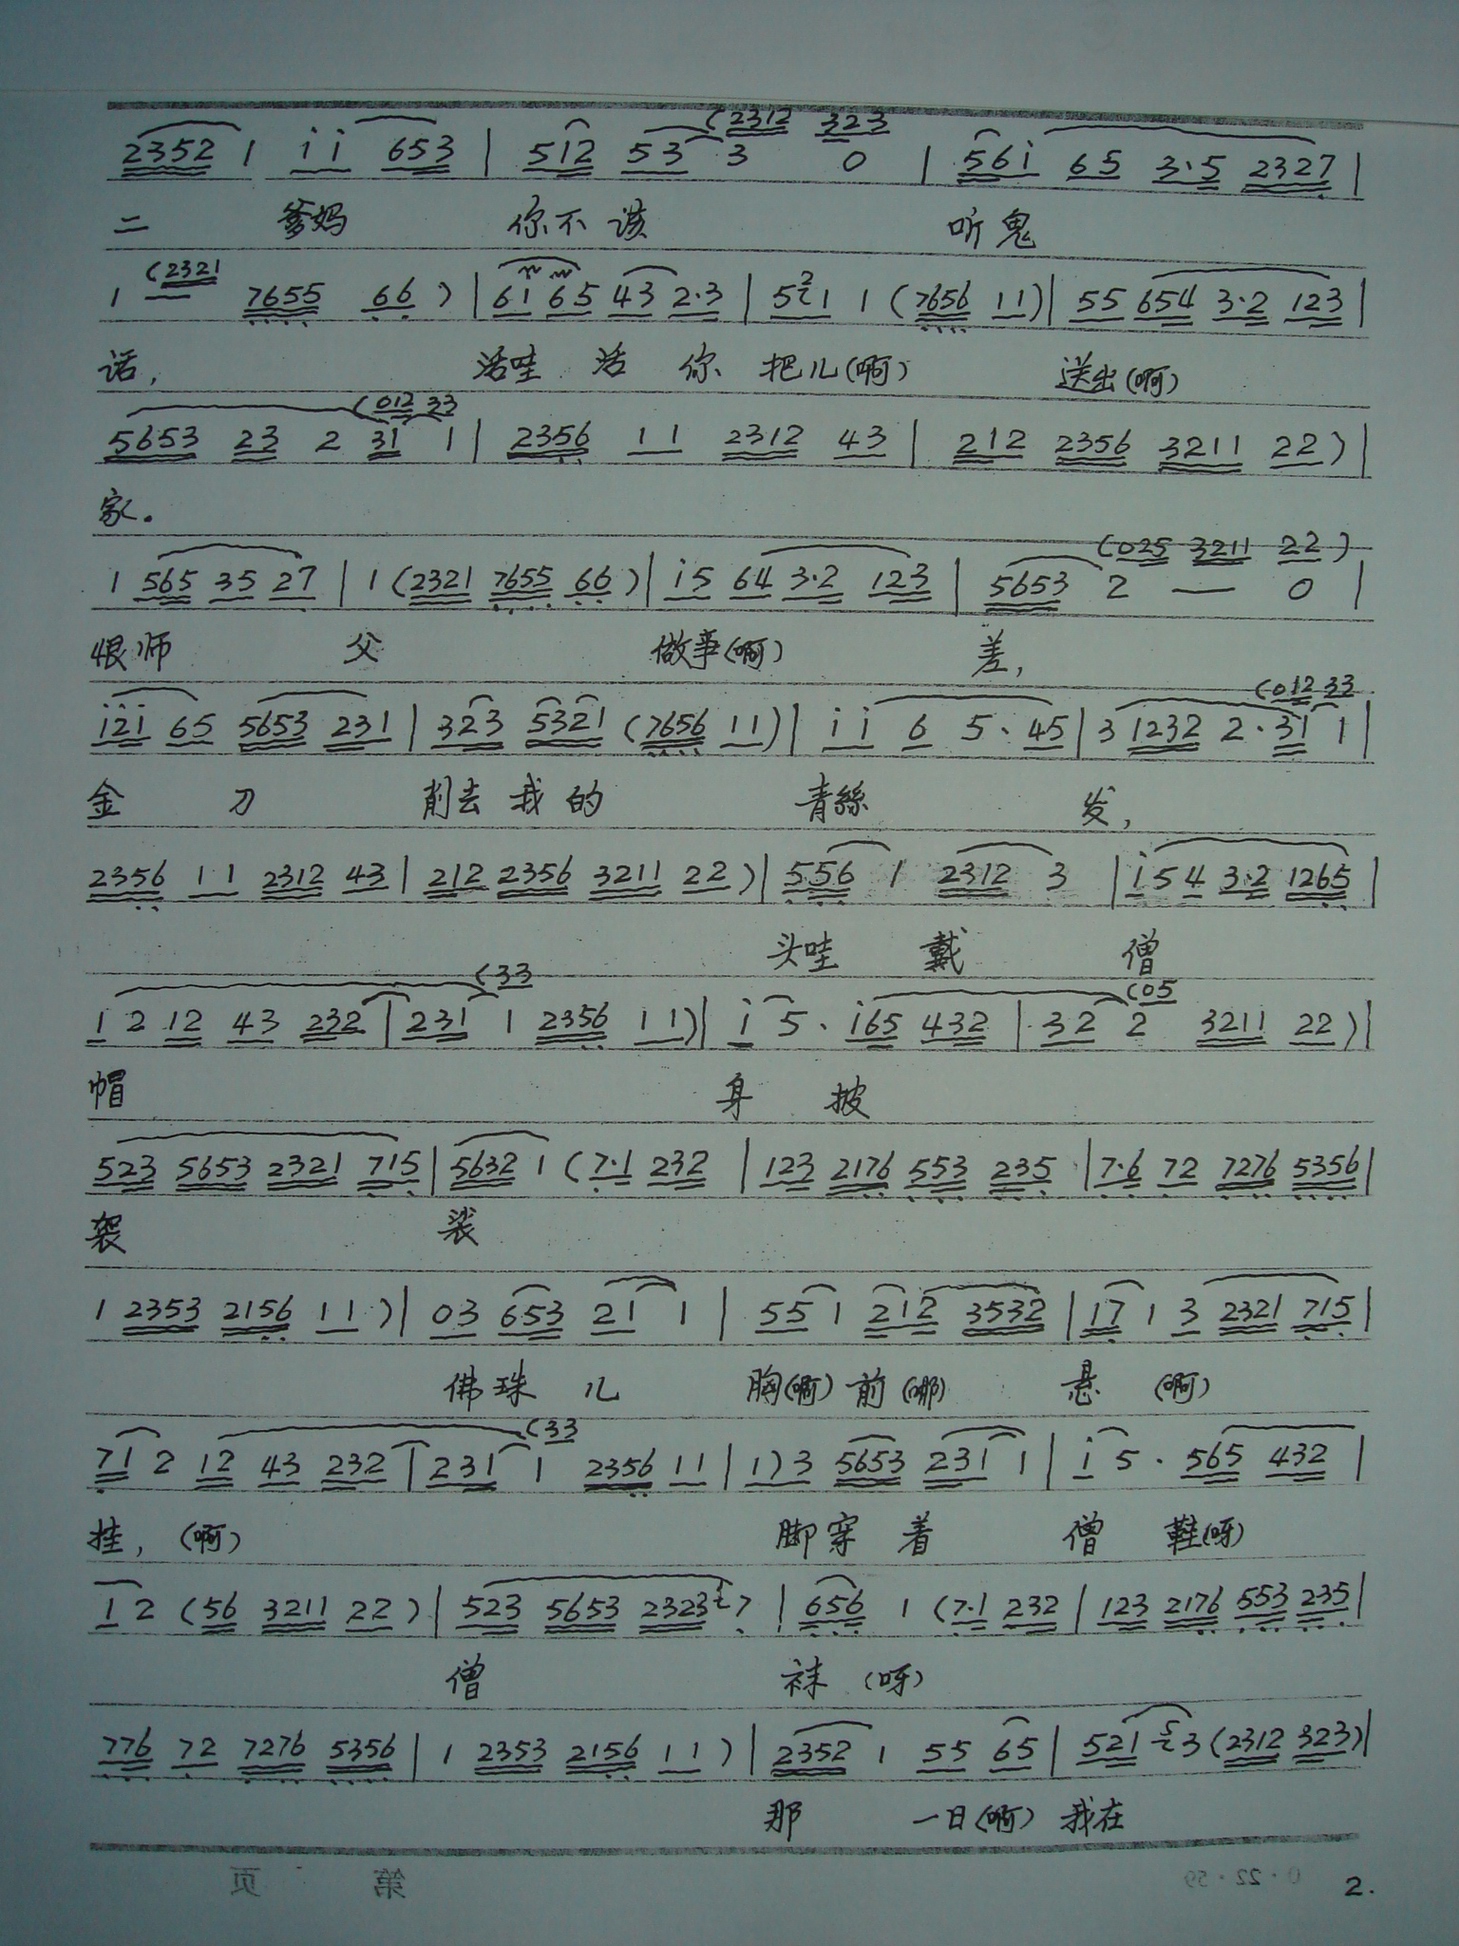 (2312 323
2352 1 i i 653 | 512 53 3 0 | 561 65 3·5 2327 |
二 爹妈 你不该 听鬼
(2321
1 — 7655 66 ) | 61 65 43 2·3 | 5 2 1 1 ( 7656 11 ) | 55 654 3·2 123 |
话, 活哇 活 你 把儿(啊) 送出(啊)
(012 33
5653 23 2 31 1 | 2356 11 2312 43 | 212 2356 3211 22 ) |
家。
(025 3211 22 )
1 565 35 27 | 1 ( 2321 7655 66 ) | i5 64 3·2 123 | 5653 2 — 0 |
恨师 父 做事(啊) 差,
(012 33
i2i 65 5653 231 | 323 5321 ( 7656 11 ) | i i 6 5 · 45 | 3 1232 2 · 31 1 |
金 刀 削去 我 的 青絲 发,
2356 11 2312 43 | 212 2356 3211 22 ) | 556 1 2312 3 | i54 3·2 1265 |
头哇 戴 僧
(33
(05
1 2 12 43 232 | 231 1 2356 11 ) | i 5 · i65 432 | 32 2 3211 22 ) |
帽 身 披
523 5653 2321 715 | 5632 1 ( 7·1 232 | 123 2176 553 235 | 7·6 72 7276 5356 |
袈 裟
1 2353 2156 11 ) | 03 653 21 1 | 55 1 212 3532 | 17 1 3 2321 715 |
佛珠 儿 胸(啊) 前(哪) 悬 (啊)
(33
71 2 12 43 232 | 231 1 2356 11 | 1 ) 3 5653 231 1 | i 5 · 565 432 |
挂, (啊) 脚穿 着 僧 鞋(呀)
1 2 ( 56 3211 22 ) | 523 5653 2323 i 7 | 656 1 ( 7·1 232 | 123 2176 553 235 |
僧 袜 (呀)
776 72 7276 5356 | 1 2353 2156 11 ) | 2352 1 55 65 | 521 5 3 ( 2312 323 ) |
那 一日(啊) 我在
第 页
0·22·59
2.